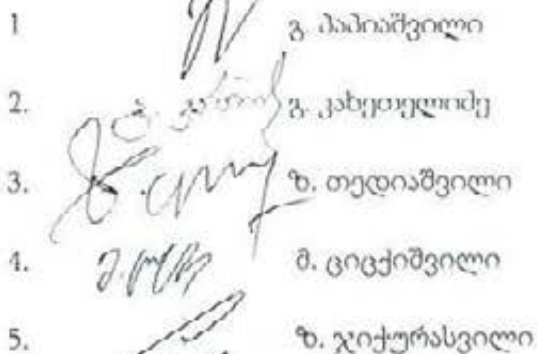 1 გ. პაპიაშვილი
2. გ. კახეთელიძე
3. ზ. თედიაშვილი
4. მ. ციცქიშვილი
5. ზ. ჯიქურასვილი